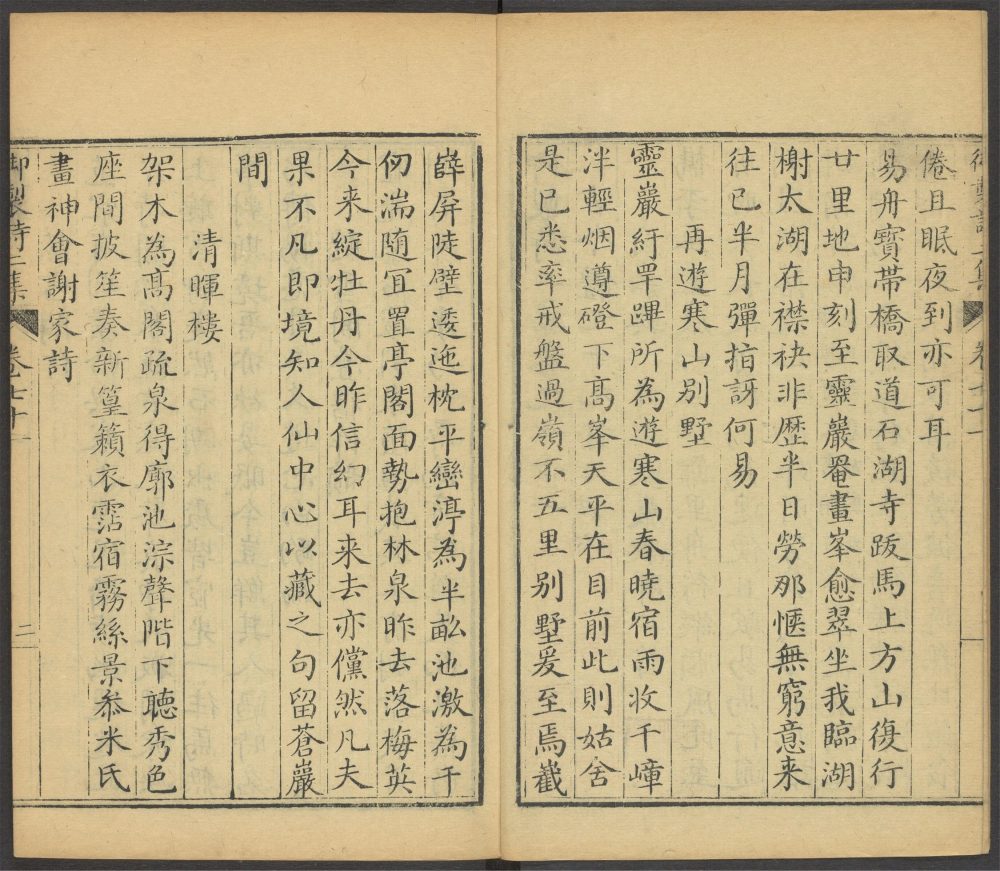 倦且眠夜到亦可耳
易舟寶帶橋取道石湖寺跋馬上方山復行
廿里地申刻至靈巖罨畫峯愈翠坐我臨湖
榭太湖在襟袂非歴半日勞那愜無窮意来
往已半月彈指訝何易
再遊寒山别墅
靈巖紆罕蹕所為遊寒山春曉宿雨收千嶂
泮輕烟遵磴下髙峯天平在目前此則姑舍
是已悉率戒盤過嶺不五里别墅爰至焉巀
嶭屏陡壁逶迤枕平巒渟為半畝池激為千
仞湍随冝置亭閣面勢抱林泉昨去落梅英
今来綻牡丹今昨信幻耳来去亦儻然凡夫
果不凡即境知人仙中心以藏之句留蒼巖
間
清暉樓
架木為髙閣疏泉得廓池淙聲階下聴秀色
座間披笙奏新篁籟衣霑宿霧絲景叅米氏
畫神會謝家詩
御製詩二集
卷七十一
二